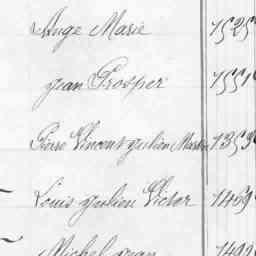 Ange Marie 1525
Jean Prosper 1551
Pierre Vincent Julien Marie 1353
Louis Julien Victor 1469
Michel Jean 1499